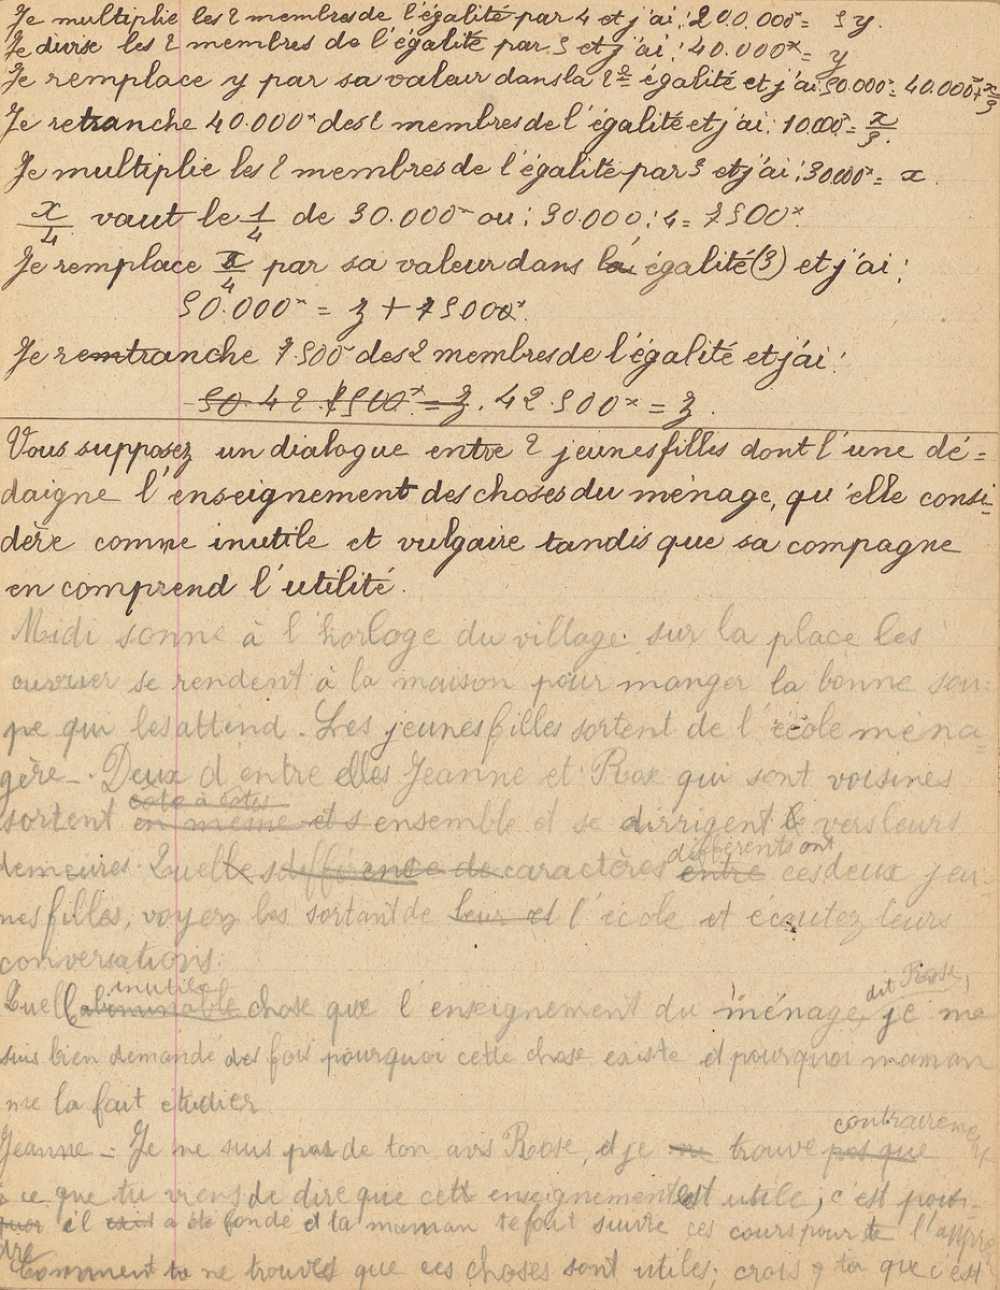 Je multiplie les 2 membres de l'égalité par 4 et j'ai : 200.000ᶠ = 5 y.
Je divise les 2 membres de l'égalité par 5 et j'ai : 40.000ˣ = y
Je remplace y par sa valeur dans la 2ᵉ égalité et j'ai 50.000ˣ = 40.000ˣ + x/3
Je retranche 40.000ˣ des 2 membres de l'égalité et j'ai : 10.000ˣ = x/3.
Je multiplie les 2 membres de l'égalité par 3 et j'ai : 30.000ˣ = x.
x/4 vaut le 1/4 de 30.000ˣ ou : 30.000 : 4 = 7500ˣ
Je remplace x/4 par sa valeur dans la égalité (3) et j'ai :
50.000ˣ = z + 7500ˣ.
Je remtranche 7.500ˣ des 2 membres de l'égalité et j'ai :
50.42.7500ˣ = z. 42.500ˣ = z.
Vous supposez un dialogue entre 2 jeunes filles dont l'une dé=
daigne l'enseignement des choses du ménage, qu'elle consi=
dère comme inutile et vulgaire tandis que sa compagne
en comprend l'utilité.
Midi sonne à l'horloge du village sur la place les
ouvrier se rendent à la maison pour manger la bonne sou=
pe qui les attend. Les jeunes filles sortent de l'école ména=
gère. Deux d'entre elles Jeanne et Rose qui sont voisines
côte à côtes
sortent en même et s ensemble et se dirrigent vers leurs
différents ont
demeures. Quelle sdifférence de caractères entre ces deux jeu=
nes filles, voyez les sortant de leur et l'école et écoutez leurs
conversations:
inutile dit Rose,
Quelle abominable chose que l'enseignement du ménage, je me
suis bien demandé des fois pourquoi cette chose existe et pourquoi maman
me la fait étudier
contrairement
Jeanne = Je ne suis pas de ton avis Rose, et je ne trouve pas que
à ce que tu viens de dire que cett enseignement est utile ; c'est pour=
quoi il a été fondé et ta maman te fait suivre ces cours pour te l'appren
dre
Comment tu ne trouves que ces choses sont utiles; crois toi que c'est